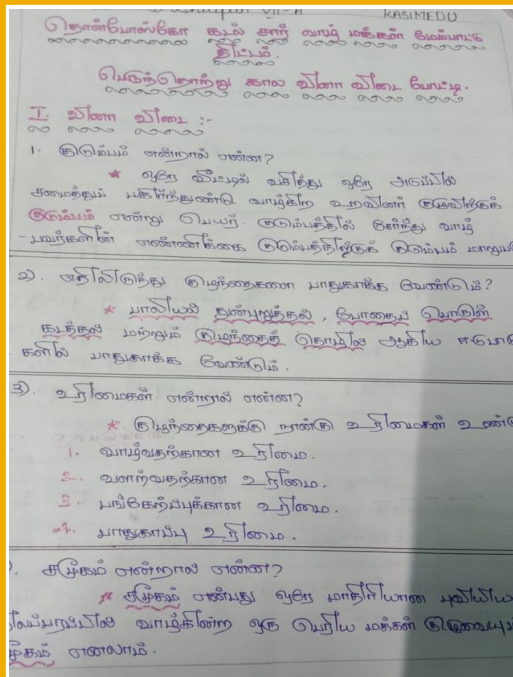 VII - A KASIMEDU
தொன்போஸ்கோ கடல் சார் வாழ் மக்கள் மேம்பாட்டு
திட்டம்.
பெருந்தொற்று கால வினா விடை போட்டி.
I. வினா விடை :-
1. குடும்பம் என்றால் என்ன?
* ஒரே வீட்டில் வசித்து ஒரே அடுப்பில்
சமைத்துப் பகிர்ந்துண்டு வாழ்கிற உறவினர் குழுவிற்குக்
குடும்பம் என்று பெயர். குடும்பத்தில் சேர்ந்து வாழ்
பவர்களின் எண்ணிக்கை குடும்பத்திற்குக் குடும்பம் மாறுப
2). எதிலிருந்து குழந்தைகளை பாதுகாக்க வேண்டும்?
* பாலியல் துன்புறுத்தல், போதைப் பொருள்
கடத்தல் மற்றும் குழந்தைத் தொழில் ஆகிய
களில் பாதுகாக்க வேண்டும்.
3). உரிமைகள் என்றால் என்ன?
* குழந்தைகளுக்கு நான்கு உரிமைகள் உண்டு
1. வாழ்வதற்கான உரிமை.
2. வளர்வதற்கான உரிமை.
3. பங்கேற்புக்கான உரிமை.
4. பாதுகாப்பு உரிமை.
). சமூகம் என்றால் என்ன?
* சமூகம் என்பது ஒரே மாதிரியான புவியிய
லப்பரப்பில் வாழ்கின்ற ஒரு பெரிய மக்கள் குழுவையு
மூகம் எனலாம்.